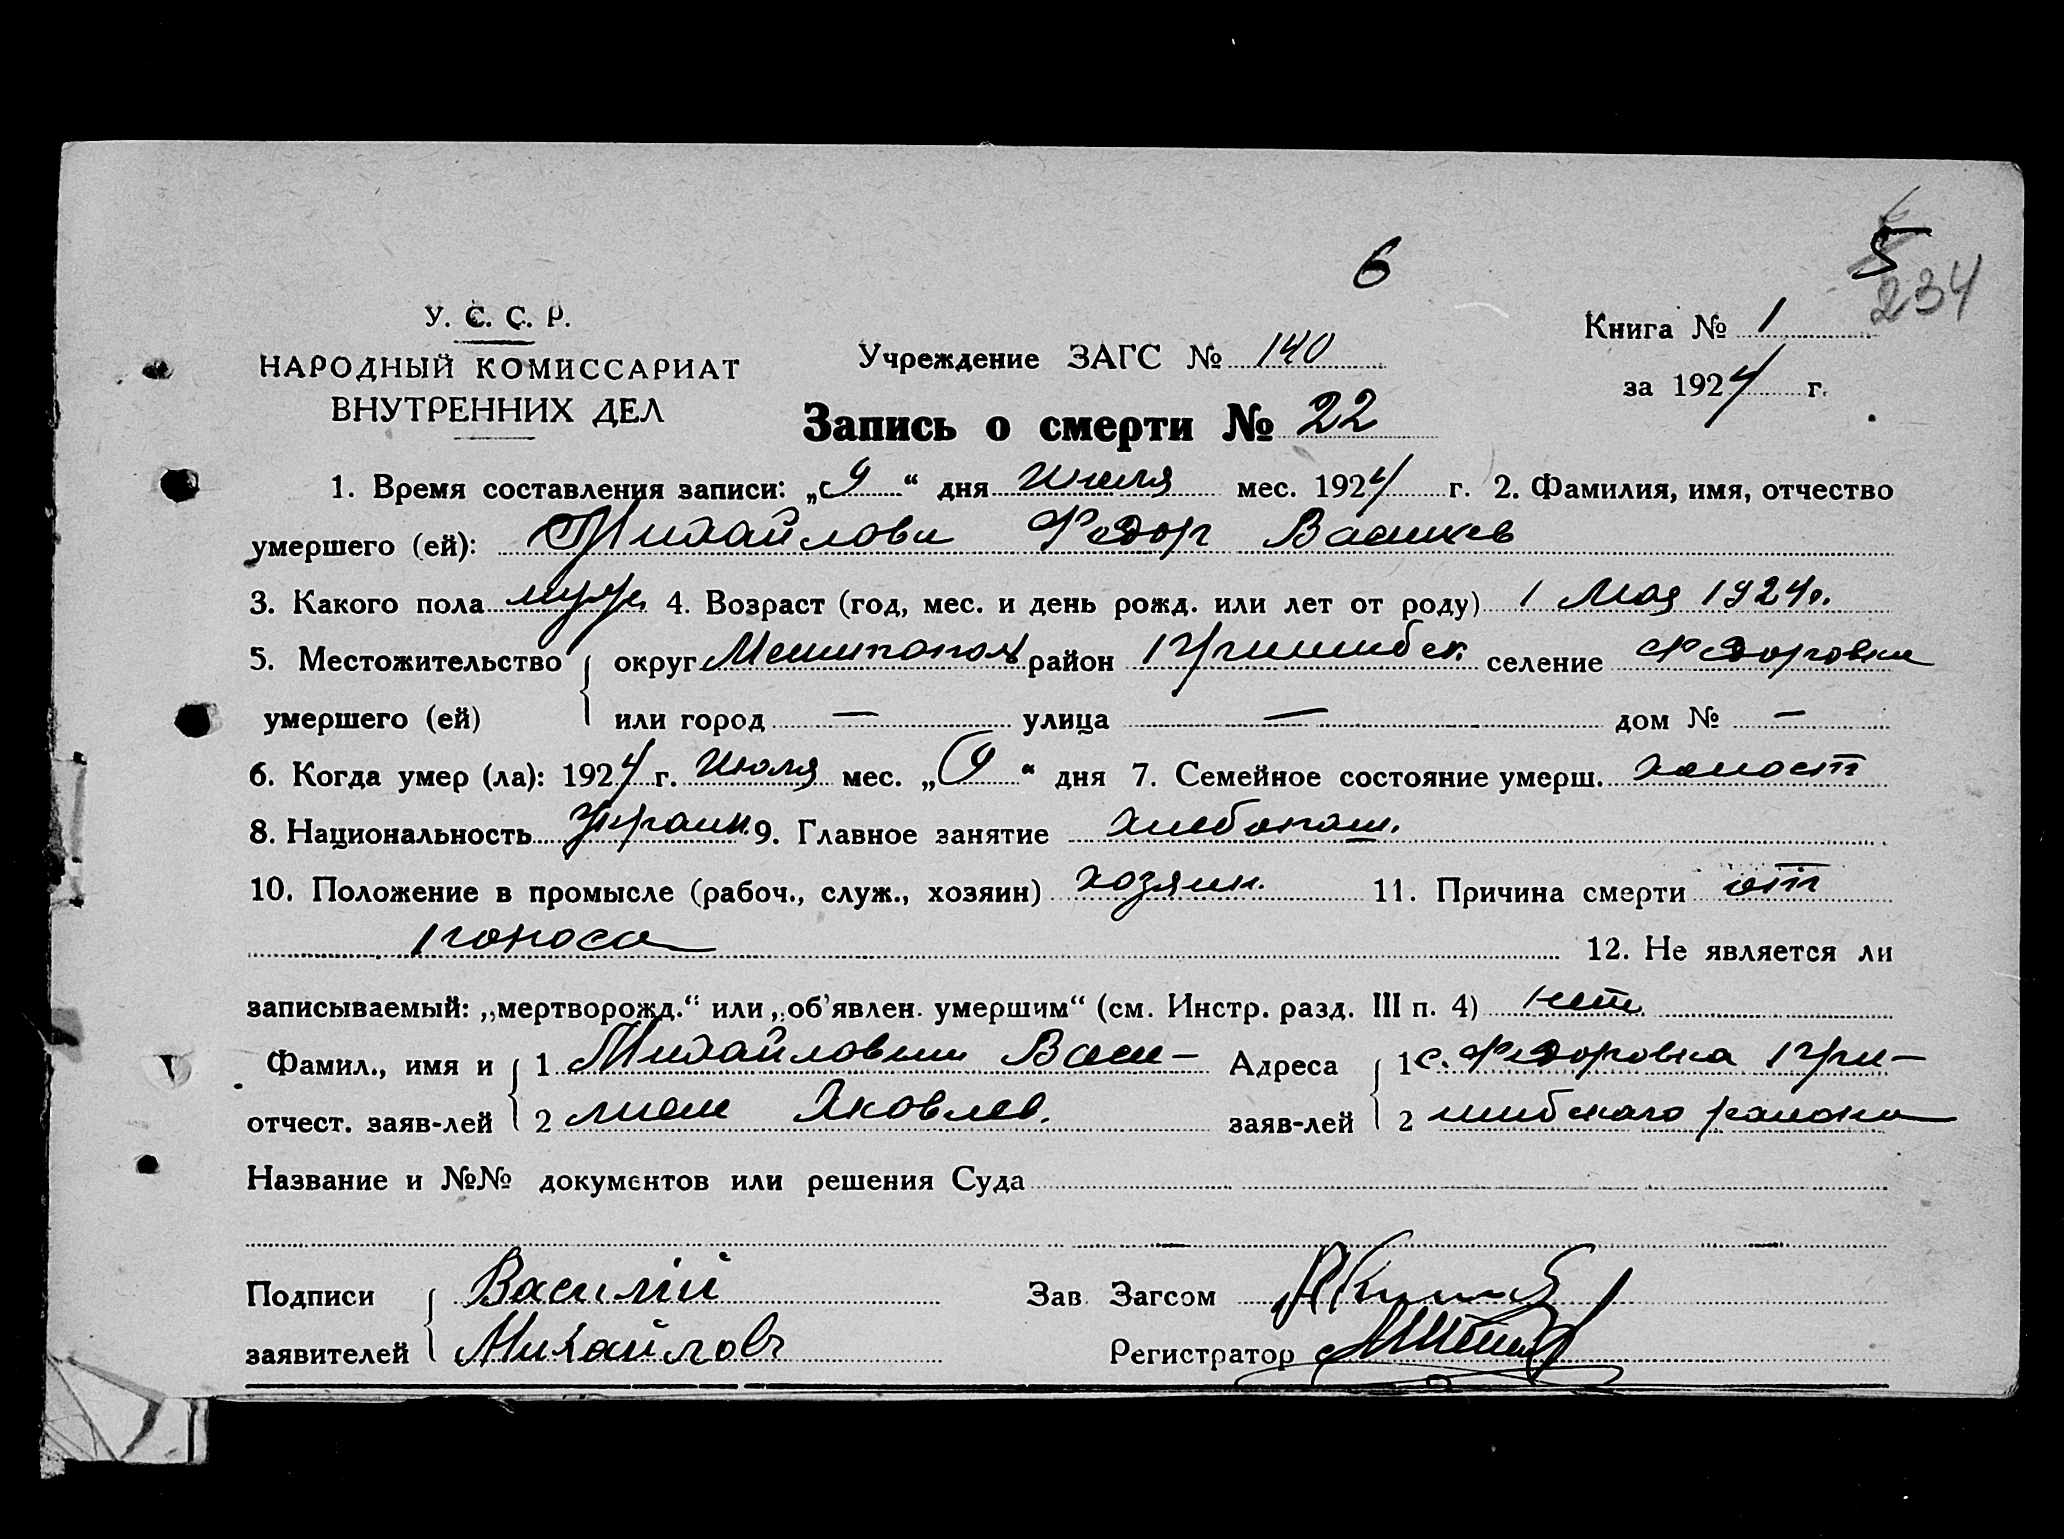 6
5
234
У. С. С. Р.
НАРОДНЫЙ КОМИССАРИАТ
ВНУТРЕННИХ ДЕЛ
Учреждение ЗАГС № 140
Книга № 1
за 1924 г.
Запись о смерти № 22
1. Время составления записи: „9“ дня Июля мес. 1924 г. 2. Фамилия, имя, отчество
умершего (ей): Федор Васильев
3. Какого пола муж. 4. Возраст (год, мес. и день рожд. или лет от роду) 1 Мая 1924г.
5. Местожительство округ Мелитопол район Пришибск. селение Федоровка
умершего (ей) или город — улица — дом № —
6. Когда умер (ла): 1924 г. Июля мес. „9“ дня 7. Семейное состояние умерш. холост
8. Национальность Украин. 9. Главное занятие хлебопаш.
10. Положение в промысле (рабоч., служ., хозяин) хозяин. 11. Причина смерти от
поноса 12. Не является ли
записываемый: „мертворожд.“ или „об'явлен. умершим“ (см. Инстр. разд. III п. 4) нет.
Фамил., имя и 1 Михайловым Васи- Адреса 1 с. Федоровка При-
отчест. заяв-лей 2 лием Яковлев. заяв-лей 2 шибского района
Название и №№ документов или решения Суда
Подписи Василий Зав. Загсом
заявителей Михайловъ Регистратор